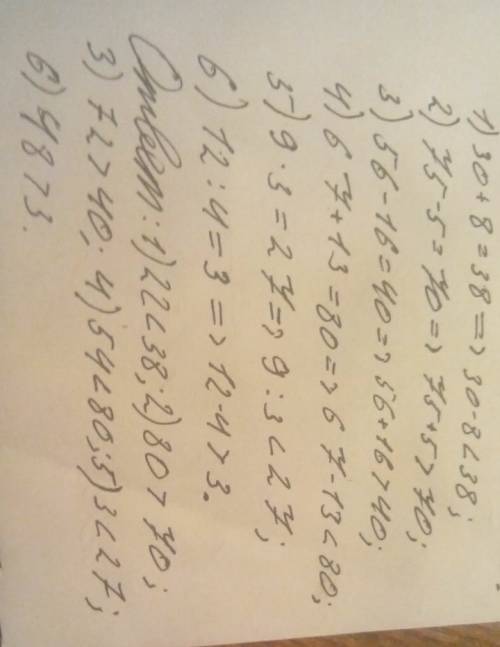 1) 30 + 8 = 38 => 30 - 8 < 38;
2) 75 - 5 = 70 => 75 + 5 > 70;
3) 56 - 16 = 40 => 56 + 16 > 40;
4) 67 + 13 = 80 => 67 - 13 < 80;
5) 9 · 3 = 27 => 9 : 3 < 27;
6) 12 : 4 = 3 => 12 · 4 > 3.
Ответ: 1) 22 < 38; 2) 80 > 70;
3) 72 > 40; 4) 54 < 80; 5) 3 < 27;
6) 48 > 3.